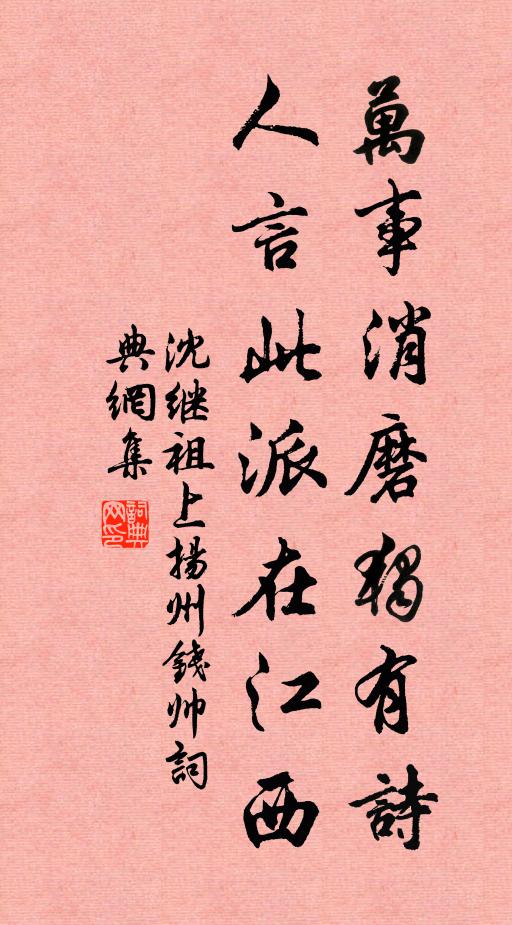 萬事消磨獨有詩
人言此派在江西
沈继祖上揚州錢帅詞
典網集
詞典
网印